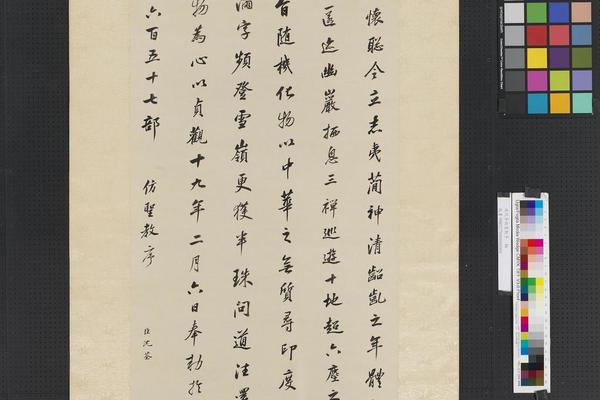 懷聰令立志夷簡神清齠齔之年體
匿迹幽巖栖息三禪巡遊十地超六塵之
旨隨機化物以中華之無質尋印度
滿字頻登雪嶺更獲半珠問道往還
物為心以貞觀十九年二月六日奉勅於
六百五十七部 仿聖教序
臣沈荃